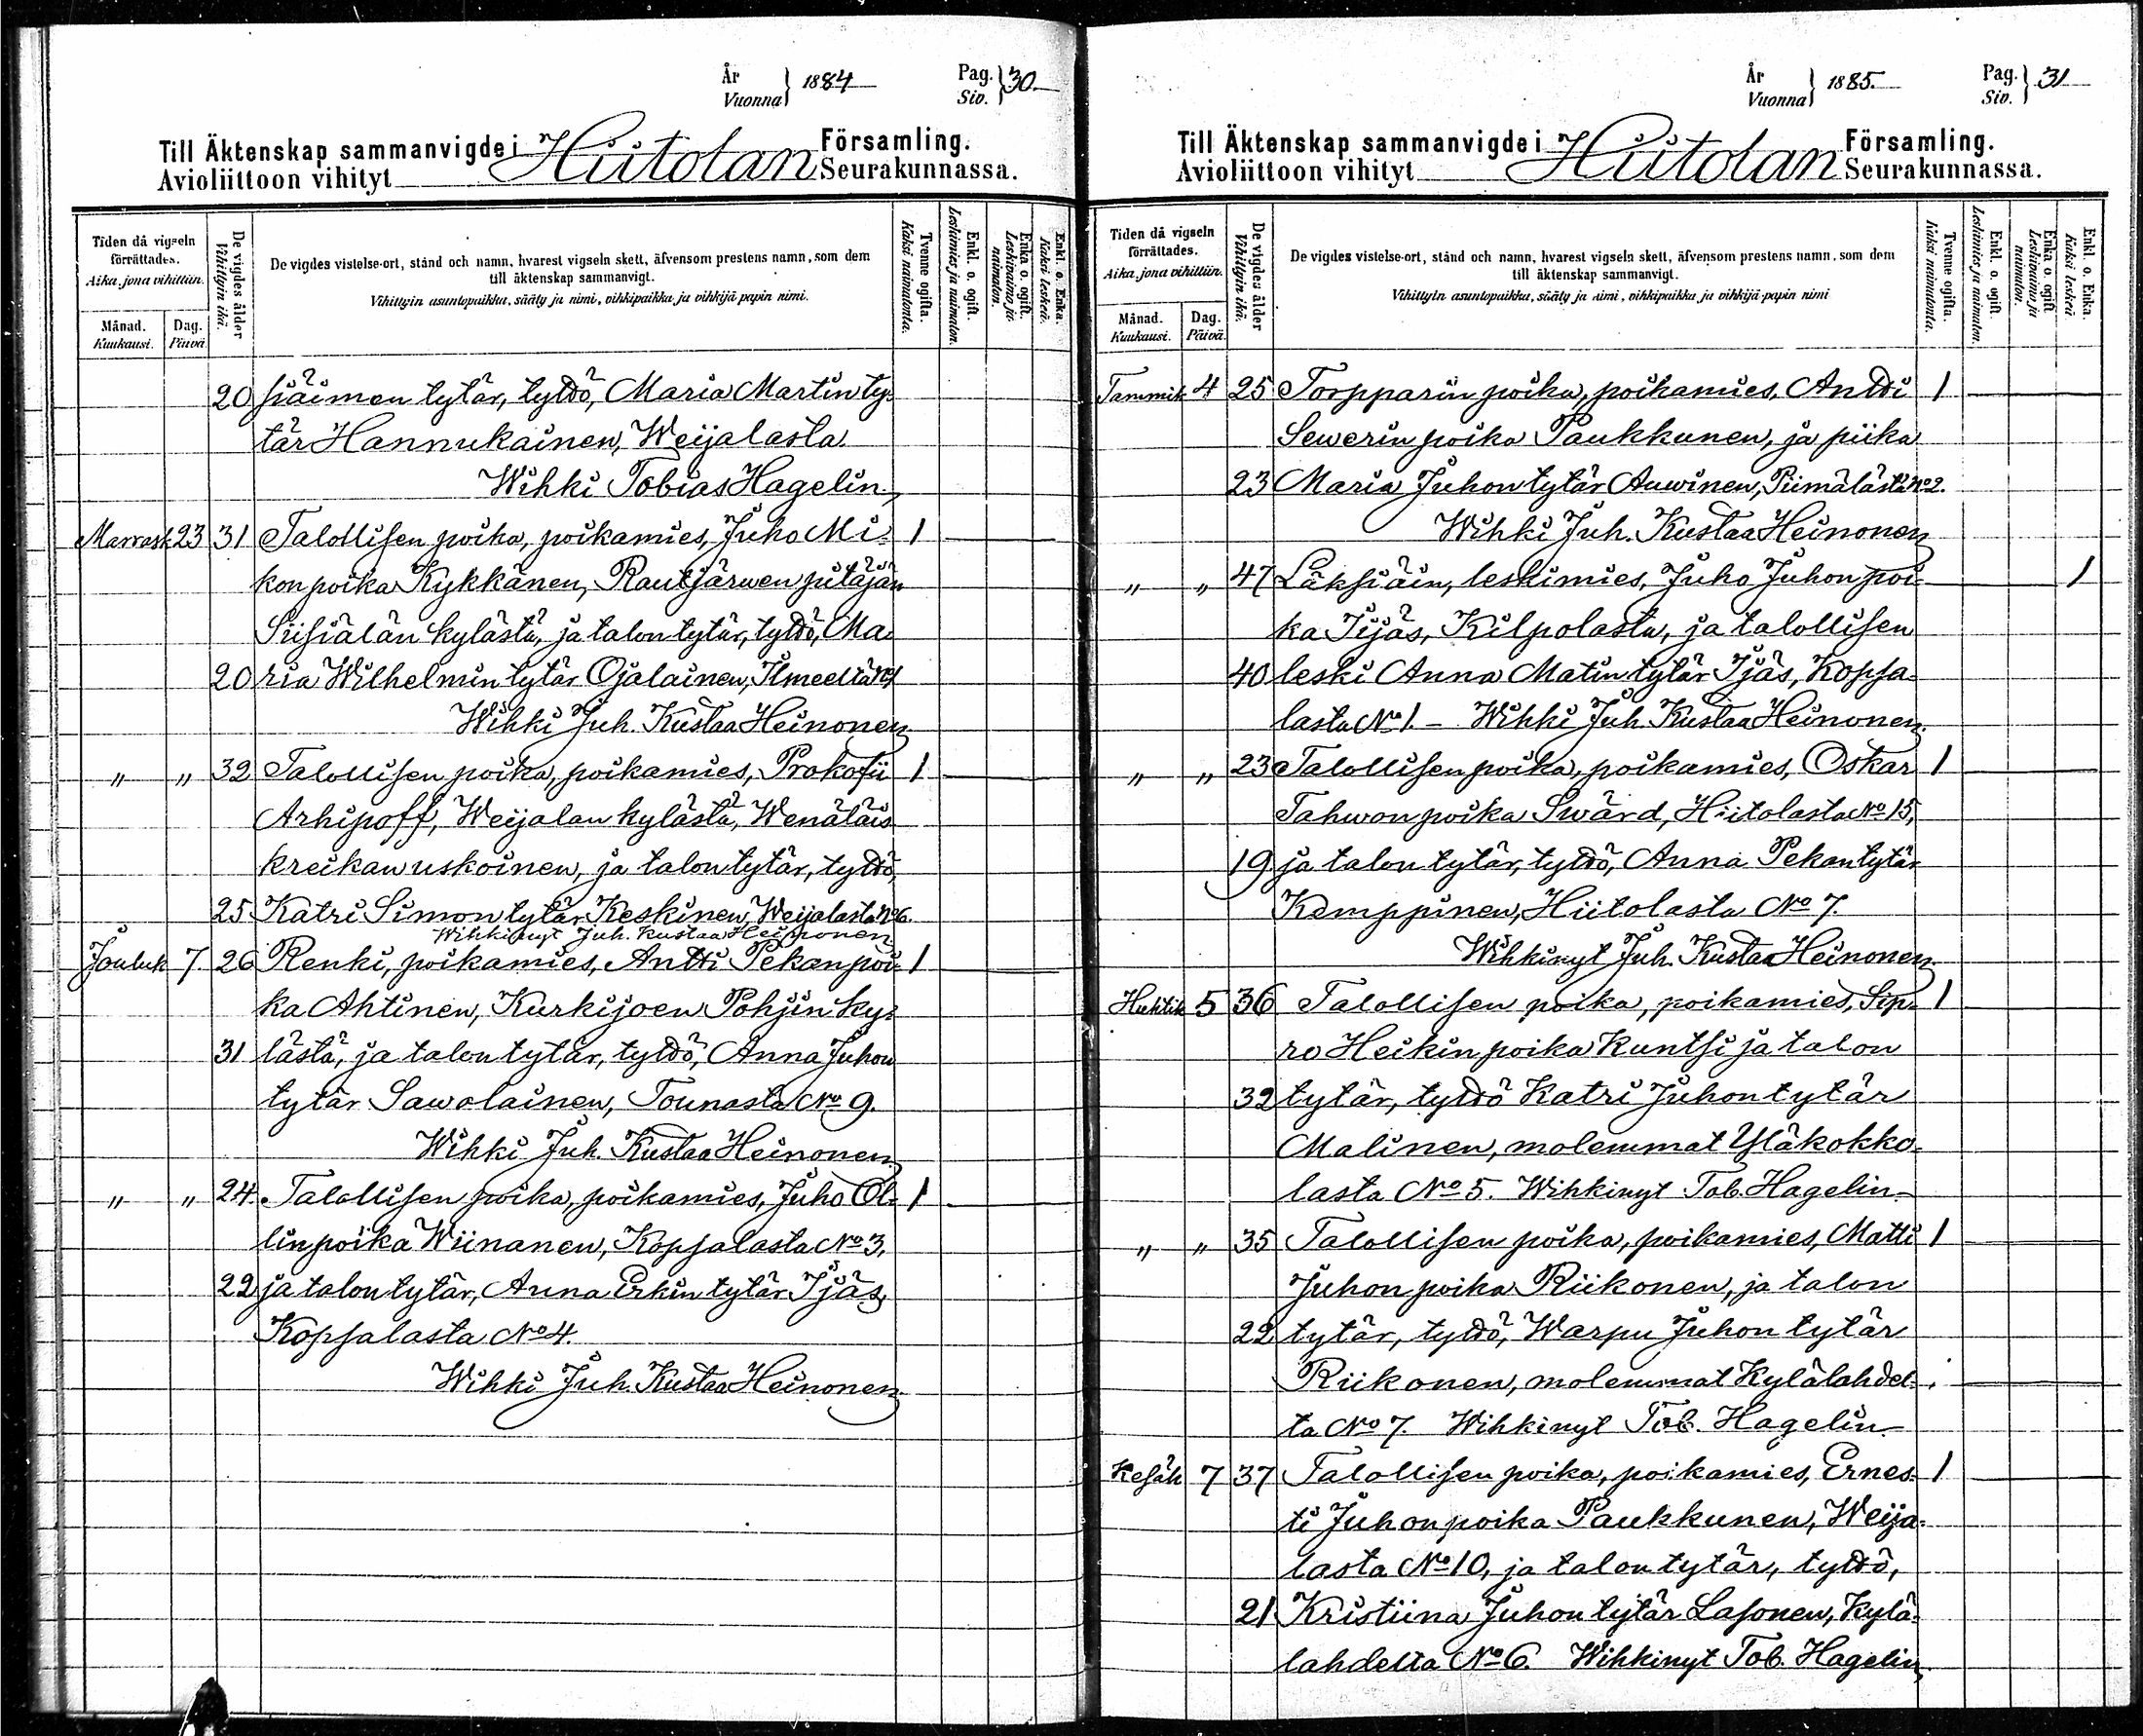 År
Vuonna } 1884
Pag.
Siv. } 30
Till Äktenskap sammanvigde i Hiitolan Församling.
Avioliittoon vihityt Seurakunnassa.
Tiden då vigseln förrättades.
Aika, jona vihittiin.
Månad.
Kuukausi.
Dag.
Päivä.
De vigdes ålder
Vihittyin ikä.
De vigdes vistelse-ort, stånd och namn, hvarest vigseln skett, äfvensom prestens namn, som dem
till äktenskap sammanvigt.
Vihittyin asuntopaikka, sääty ja nimi, vihkipaikka ja vihkijä papin nimi.
Tvenne ogifta.
Kaksi naimatonta.
Enkl. o. ogift.
Leskimies ja naimaton.
Enka o. ogift.
Leskivaimo ja naimaton.
Enkl. o. Enka.
Kaksi leskeä.
20 siäimen tytär, tyttö, Maria Martinty-
tär Hannukainen, Weijalasta
Wihki Tobias Hagelin
Marrask 23 31 Talollisen poika, poikamies, Juho Mi- 1
konpoika Kykkänen, Rautjärwen pitäjän
Siisiälän kylästä, ja talon tytär, tyttö, Ma-
20 ria Wilhelmin tytär Ojalainen, Ilmeeltä No 1
Wihki Juh. Kustaa Heinonen
" " 32 Talollisen poika, poikamies, Prokofii 1
Arhipoff, Weijalan kylästä, Wenäläis
kreikan uskoinen, ja talon tytär, tyttö,
25 Katri Simon tytär Keskinen, Weijalasta No 6.
Wihkinyt Juh. Kustaa Heinonen
Jouluk 7. 26 Renki, poikamies, Antti Pekan poi- 1
ka Ahtinen, Kurkijoen Pohjin ky-
31 lästä, ja talon tytär, tyttö, Anna Juhon
tytär Sawolainen, Tounasta No 9.
Wihki Juh. Kustaa Heinonen
" " 24. Talollisen poika, poikamies, Juho Ol- 1
linpoika Wiinanen, Kopsalasta No 3,
22 ja talon tytär, Anna Erkin tytär Ijäs,
Kopsalasta No 4.
Wihki Juh. Kustaa Heinonen
År
Vuonna } 1885.
Pag.
Siv. } 31
Till Äktenskap sammanvigde i Hiitolan Församling.
Avioliittoon vihityt Seurakunnassa.
Tiden då vigseln förrättades.
Aika, jona vihittiin.
Månad.
Kuukausi.
Dag.
Päivä.
De vigdes ålder
Vihittyin ikä.
De vigdes vistelse-ort, stånd och namn, hvarest vigseln skett, äfvensom prestens namn, som dem
till äktenskap sammanvigt.
Vihittyin asuntopaikka, sääty ja nimi, vihkipaikka ja vihkijä papin nimi
Tvenne ogifta.
Kaksi naimatonta.
Enkl. o. ogift.
Leskimies ja naimaton.
Enka o. ogift
Leskivaimo ja naimaton.
Enkl. o. Enka.
Kaksi leskeä
Tammik 4 25 Torpparin poika, poikamies, Antti 1
Sewerin poika Paukkunen, ja piika
23 Maria Juhon tytär Auwinen, Piimälästä No 2.
Wihki Juh. Kustaa Heinonen
" " 47 Läksiäin, leskimies, Juho Juhon poi- 1
ka Iijäs, Kilpolasta, ja talollisen
40 leski Anna Matin tytär Ijäs, Kopsa-
lasta No 1. – Wihki Juh. Kustaa Heinonen.
" " 23 Talollisen poika, poikamies, Oskar 1
Tahwon poika Swärd, Hiitolasta No 15,
19 ja talon tytär, tyttö, Anna Pekan tytär
Kemppinen, Hiitolasta No 7.
Wihkinyt Juh. Kustaa Heinonen.
Huhtik 5 36 Talollisen poika, poikamies, Sip- 1
ro Heikin poika Kuntsi ja talon
32 tytär, tyttö Katri Juhon tytär
Malinen, molemmat Yläkokko-
lasta No 5. Wihkinyt Tob. Hagelin
" " 35 Talollisen poika, poikamies, Matti 1
Juhon poika Riikonen, ja talon
22 tytär, tyttö, Warpu Juhon tytär
Riikonen, molemmat Kylälahdel-
ta No 7. Wihkinyt Tob. Hagelin
Kesäk 7 37 Talollisen poika, poikamies, Ernes- 1
ti Juhon poika Paukkunen, Weija-
lasta No 10, ja talon tytär, tyttö,
21 Kristiina Juhon tytär Lasonen, Kylä-
lahdelta No 6. Wihkinyt Tob. Hagelin